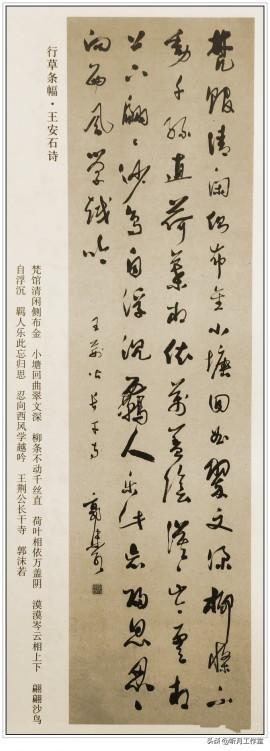 梵馆清闲侧布金小塘回曲翠文深柳条不
动千丝直荷叶相依万盖阴漠漠岑云相
上下翩翩沙鸟自浮沉羁人乐此忘归思忍
向西风学越吟
王荆公长干寺
郭沫若
行草条幅·王安石诗
梵馆清闲侧布金 小塘回曲翠文深 柳条不动千丝直 荷叶相依万盖阴 漠漠岑云相上下 翩翩沙鸟
自浮沉 羁人乐此忘归思 忍向西风学越吟 王荆公长干寺 郭沫若
头条@听月工作室